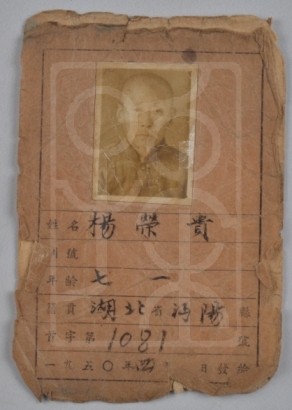 姓名 楊榮貴
別號
年齡 七一
籍貫 湖北省沔陽縣
首字第 1081 號
一九五〇年四 日發給